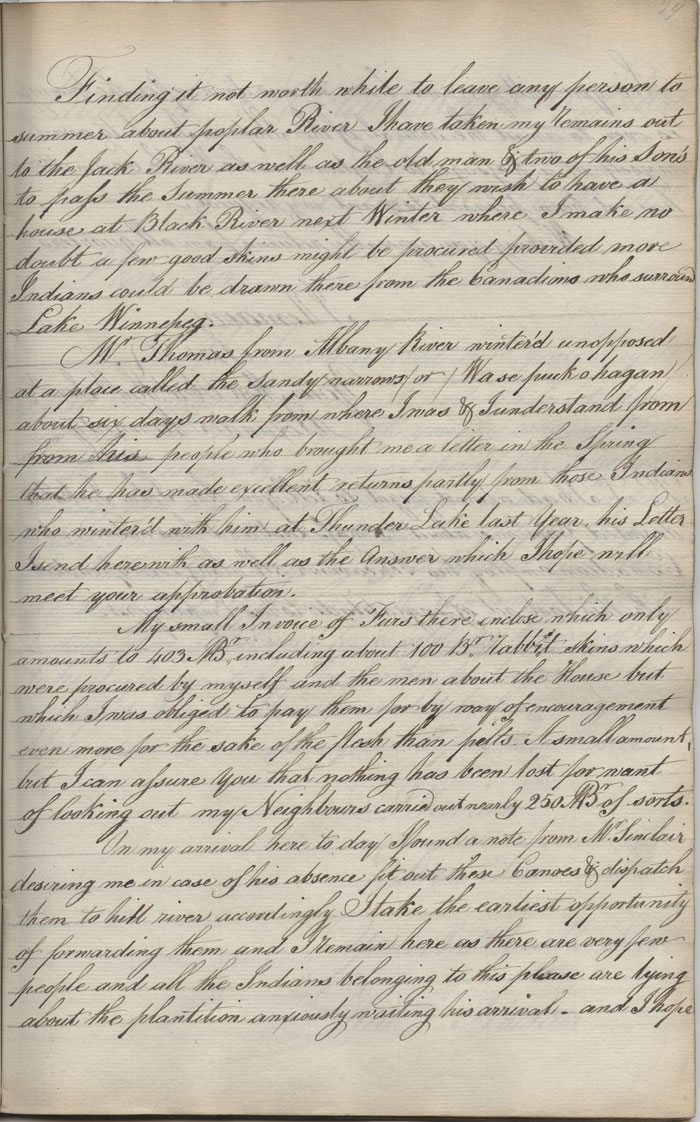 Finding it not worth while to leave any person to
summer about poplar River I have taken my remains out
to the Jack River as well as the old man & two of his Son's
to pass the Summer there about they wish to have a
house at Black River next Winter where I make no
doubt a few good skins might be procured provided more
Indians could be drawn there from the Canadians who surround
Lake Winnepeg.
Mr Thomas from Albany River winter'd unopposed
at a place called the Sandy narrows / or / Wasepuck o hagan /
about six days walk from where I was & I understand from
from his people who brought me a letter in the Spring
that he has made excellent returns partly from those Indians
who winter'd with him at Thunder Lake last Year, his Letter
I send herewith as well as the Answer which I hope will
meet your approbation.
My small Invoice of Furs there enclose which only
amounts to 403 MBr. including about 100 Br. rabbit skins which
were procured by myself and the men about the House but
which I was obliged to pay them for by way of encouragement
even more for the sake of the flesh than pelts. A small amount,
but I can assure you that nothing has been lost for want
of looking out my Neighbours carried out nearly 250 MBr of sorts.
On my arrival here to day I found a note from Mr Sinclair
desiring me in case of his absence fit out these Canoes & dispatch
them to hill river accordingly I take the earliest opportunity
of forwarding them and I remain here as there are very few
people and all the Indians belonging to this please are lying
about the plantition anxiously waiting his arrival - and I hope